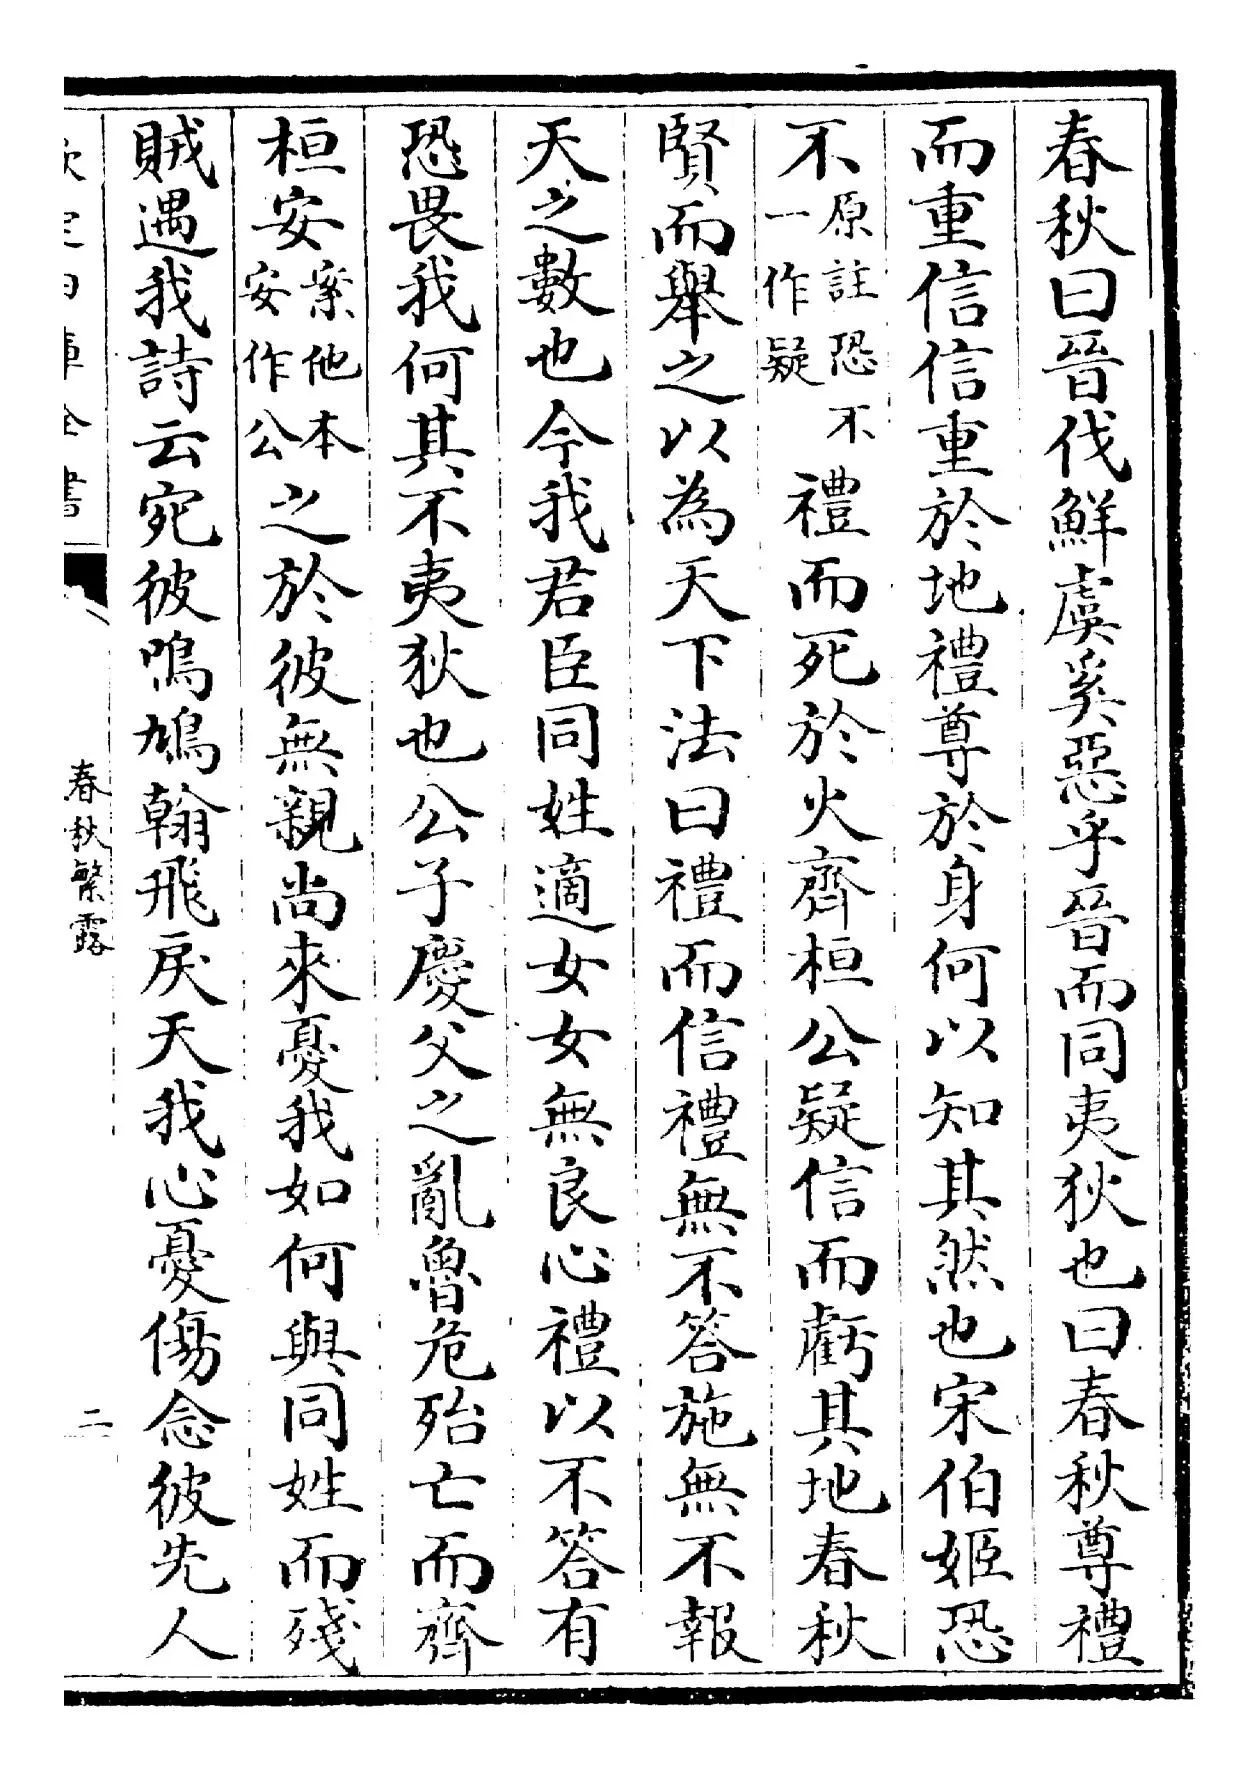 春秋曰晉伐鮮虞奚惡乎晉而同夷狄也曰春秋尊禮
而重信信重於地禮尊於身何以知其然也宋伯姬恐
不原註恐不一作疑禮而死於火齊桓公疑信而虧其地春秋
賢而舉之以為天下法曰禮而信禮無不答施無不報
天之數也今我君臣同姓適女女無良心禮以不答有
恐畏我何其不夷狄也公子慶父之亂魯危殆亡而齊
桓安案他本安作公之於彼無親尚來憂我如何與同姓而殘
賊遇我詩云宛彼鳴鳩翰飛戾天我心憂傷念彼先人
欽定四庫全書
春秋繁露
二